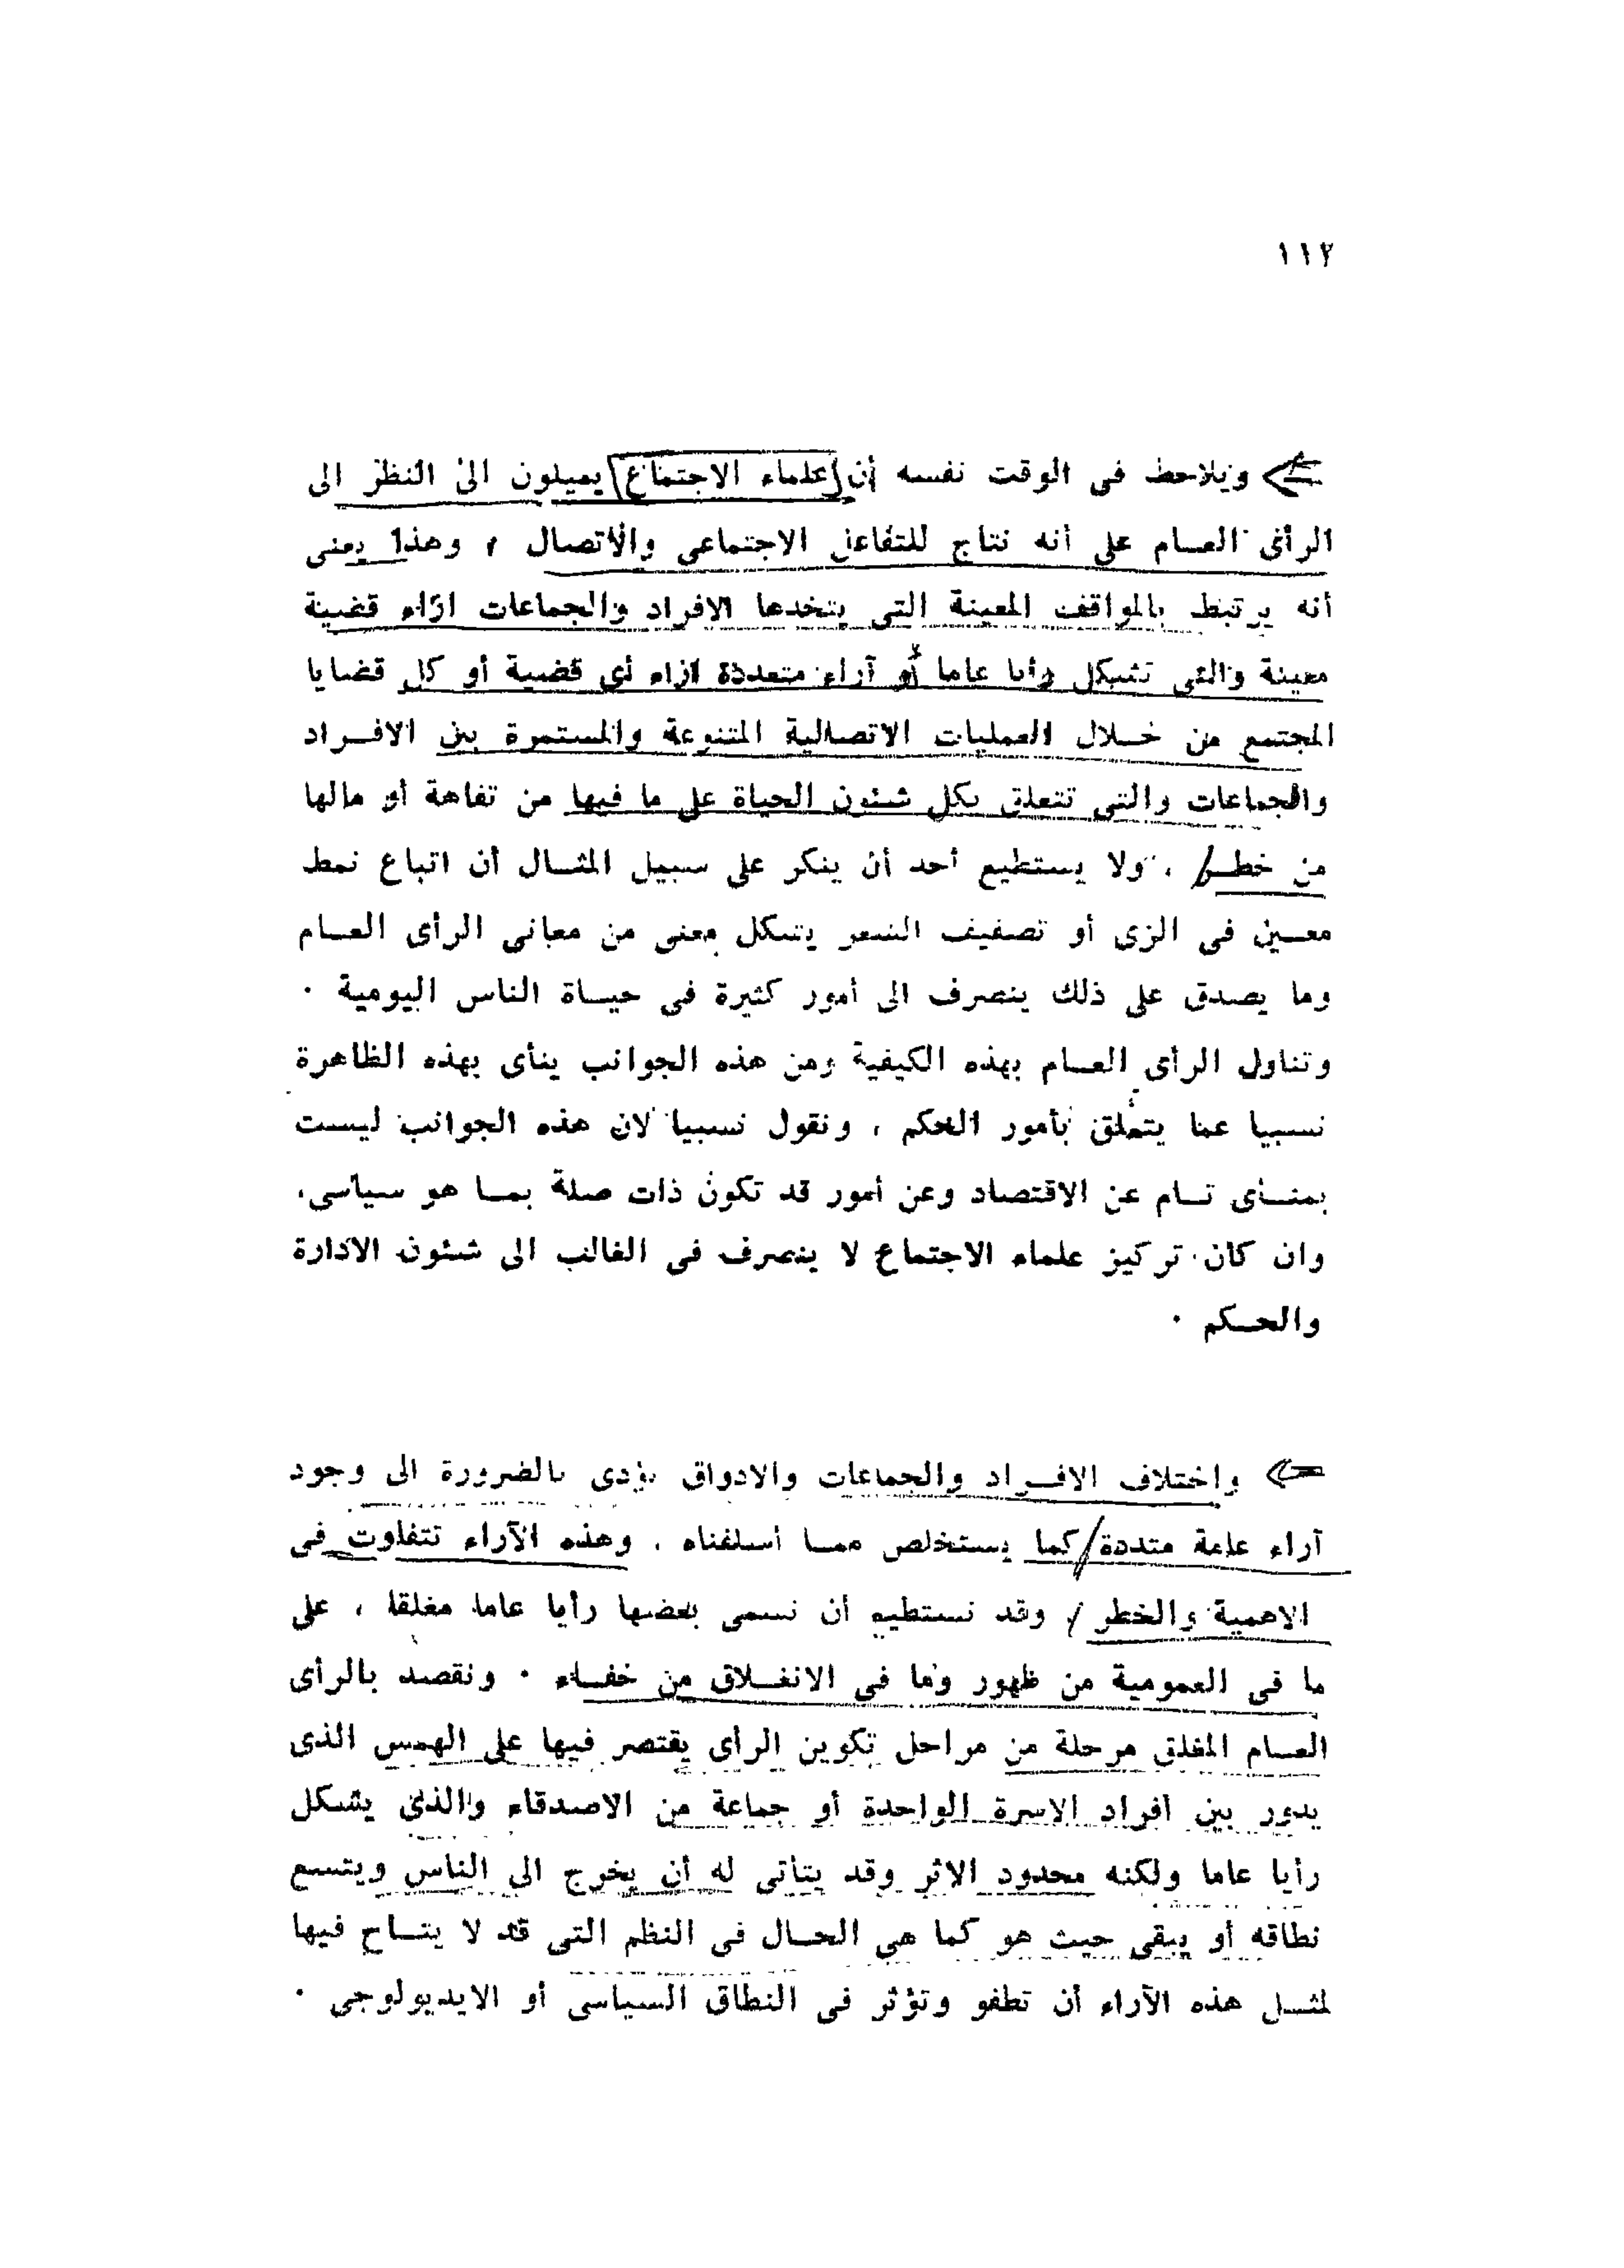 ١١٢
ويلاحظ فى الوقت نفسه أن علماء الاجتماع يميلون الى النظر الى
الرأى العــام على أنه نتاج للتفاعل الاجتماعى والاتصال ، وهذا يعنى
أنه يرتبط بالمواقف المعينة التى يتخدها الافراد والجماعات ازاء قضية
معينة والتى تشكل رأيا عاما أو آراء متعددة ازاء أى قضية أو كل قضايا
المجتمع من خــلال العمليات الاتصالية المتنوعة والمستمرة بين الافــراد
والجماعات والتى تتعلق بكل شئون الحياة على ما فيها من تفاهة أو مالها
من خطــر ، ولا يستطيع أحد أن ينكر على سبيل المثــال أن اتباع نمط
معــين فى الزى أو تصفيف الشعر يشكل معنى من معانى الرأى العــام
وما يصدق على ذلك ينصرف الى أمور كثيرة فى حيــاة الناس اليومية .
وتناول الرأى العــام بهذه الكيفية ومن هذه الجوانب ينأى بهذه الظاهرة
نسبيا عما يتعلق بأمور الحكم ، ونقول نسبيا لان هذه الجوانب ليست
بمنــأى تــام عن الاقتصاد وعن أمور قد تكون ذات صلة بمــا هو سياسى،
وان كان تركيز علماء الاجتماع لا ينصرف فى الغالب الى شئون الادارة
والحــكم .
واختلاف الافــراد والجماعات والادواق يؤدى بالضرورة الى وجود
آراء عامة متددة كما يستخلص ممــا أسلفناه . وهذه الآراء تتفاوت فى
الاهمية والخطر ، وقد نستطيع أن نسمى بعضها رأيا عاما مغلقا ، على
ما فى العمومية من ظهور وما فى الانغــلاق من خفــاء . ونقصد بالرأى
العــام المغلق مرحلة من مراحل تكوين الرأى يقتصر فيها على الهمس الذى
يدور بين أفراد الاسرة الواحدة أو جماعة من الاصدقاء والذى يشكل
رأيا عاما ولكنه محدود الاثر وقد يتأتى له أن يخرج الى الناس ويتسع
نطاقه أو يبقى حيث هو كما هى الحــال فى النظم التى قد لا يتــاح فيها
لمثــل هذه الآراء أن تطفو وتؤثر فى النطاق السياسى أو الايديولوجى .